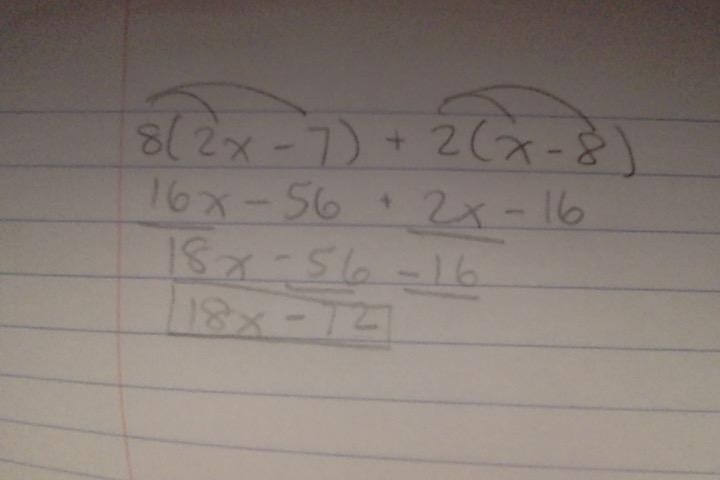 8(2x - 7) + 2(x - 8)
16x - 56 + 2x - 16
18x - 56 - 16
18x - 72